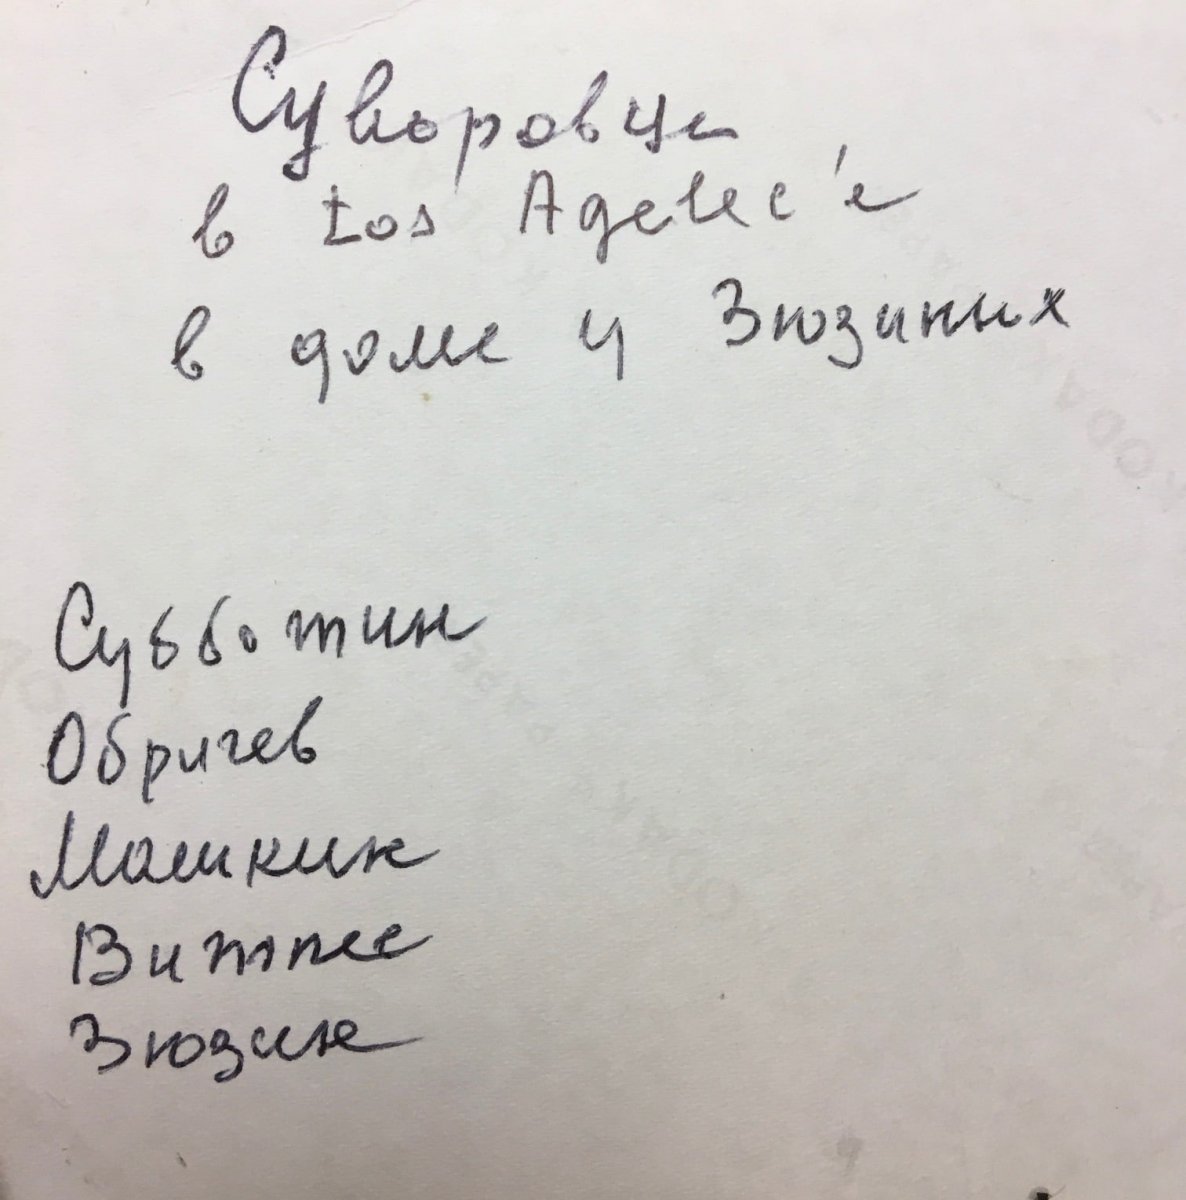 Суворовци
в Los Agelec'е
в доме у Зюзиных
Субботин
Обричев
Машкин
Витте
Зюзин